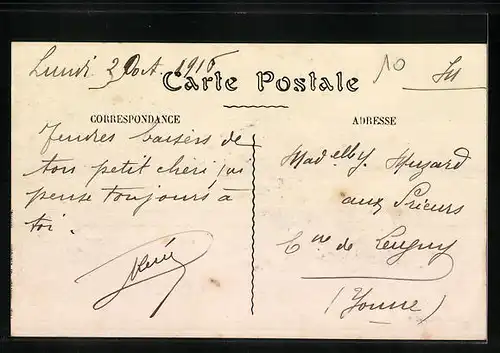 Lundi 2 Oct. 1916
10
Carte Postale
CORRESPONDANCE
Tendres baisers de
ton petit chéri qui
pense toujours à
toi.
René
ADRESSE
Huzard
aux Prieurs
Cne de Leugny
(Yonne)